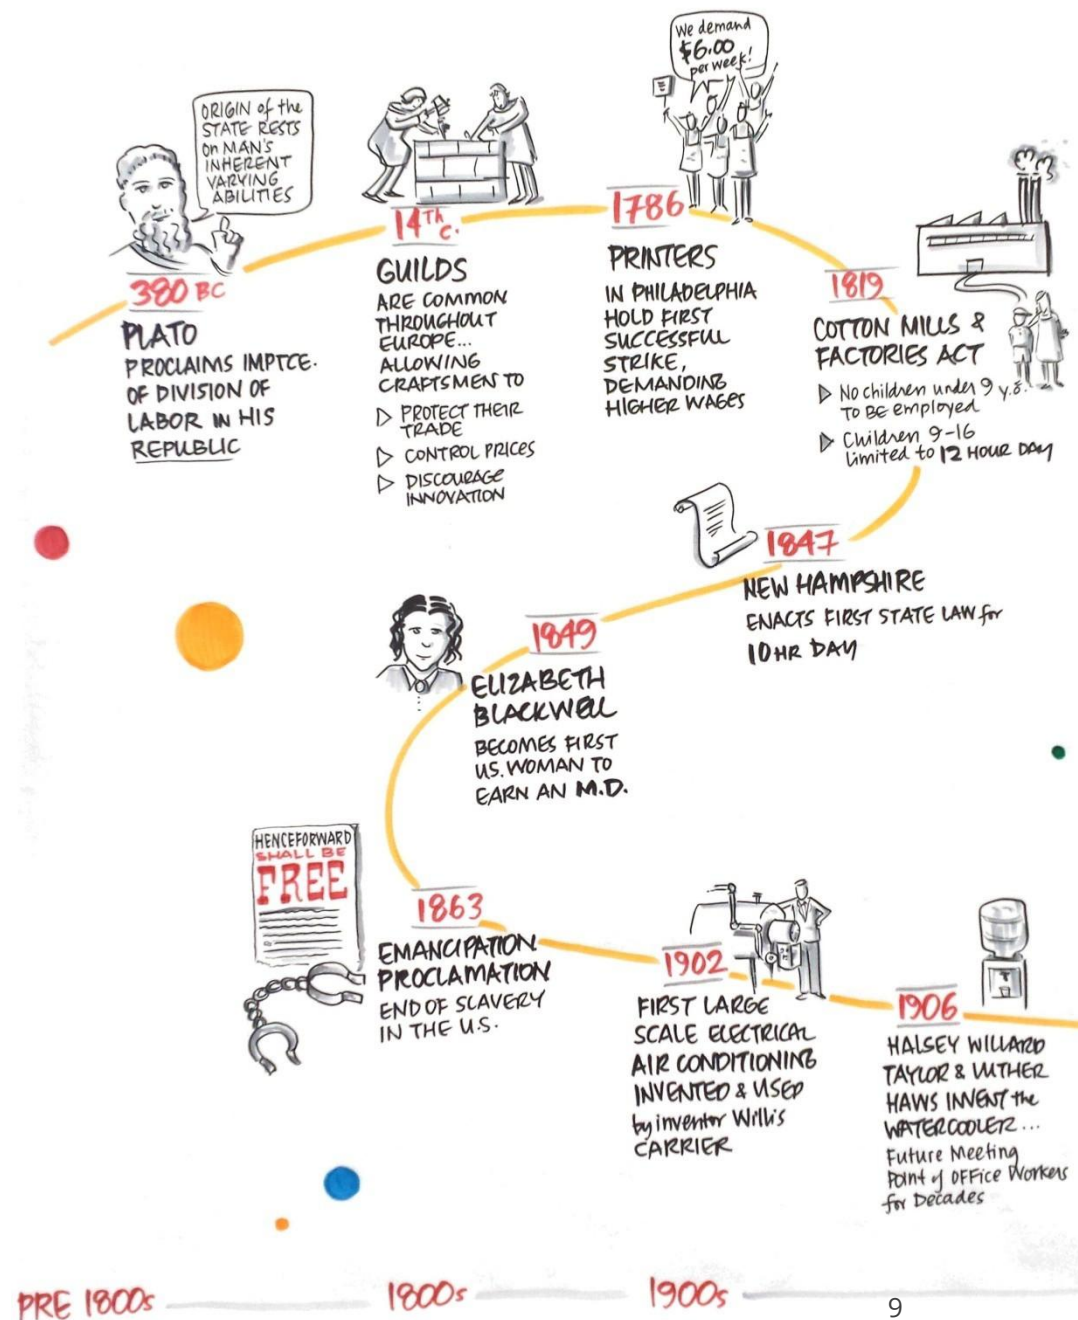 We demand
$6.00
per week!
ORIGIN of the
STATE RESTS
On MAN'S
INHERENT
VARYING
ABILITIES
380 BC
PLATO
PROCLAIMS IMPTCE.
OF DIVISION OF
LABOR IN HIS
REPUBLIC
14Th c.
GUILDS
ARE COMMON
THROUGHOUT
EUROPE...
ALLOWING
CRAFTSMEN TO
▷ PROTECT THEIR
TRADE
▷ CONTROL PRICES
▷ DISCOURAGE
INNOVATION
1786
PRINTERS
IN PHILADELPHIA
HOLD FIRST
SUCCESSFUL
STRIKE,
DEMANDING
HIGHER WAGES
1819
COTTON MILLS &
FACTORIES ACT
▷ No children under 9 y.o.
TO BE employed
▷ Children 9-16
limited to 12 HOUR DAY
1847
NEW HAMPSHIRE
ENACTS FIRST STATE LAW for
10 HR DAY
1849
ELIZABETH
BLACKWELL
BECOMES FIRST
U.S. WOMAN TO
EARN AN M.D.
HENCEFORWARD
SHALL BE
FREE
1863
EMANCIPATION
PROCLAMATION
END OF SLAVERY
IN THE U.S.
1902
FIRST LARGE
SCALE ELECTRICAL
AIR CONDITIONING
INVENTED & USED
by inventor Willis
CARRIER
1906
HALSEY WILLARD
TAYLOR & LUTHER
HAWS INVENT the
WATERCOOLER...
Future Meeting
Point of OFFice Workers
for Decades
PRE 1800s
1800s
1900s
9